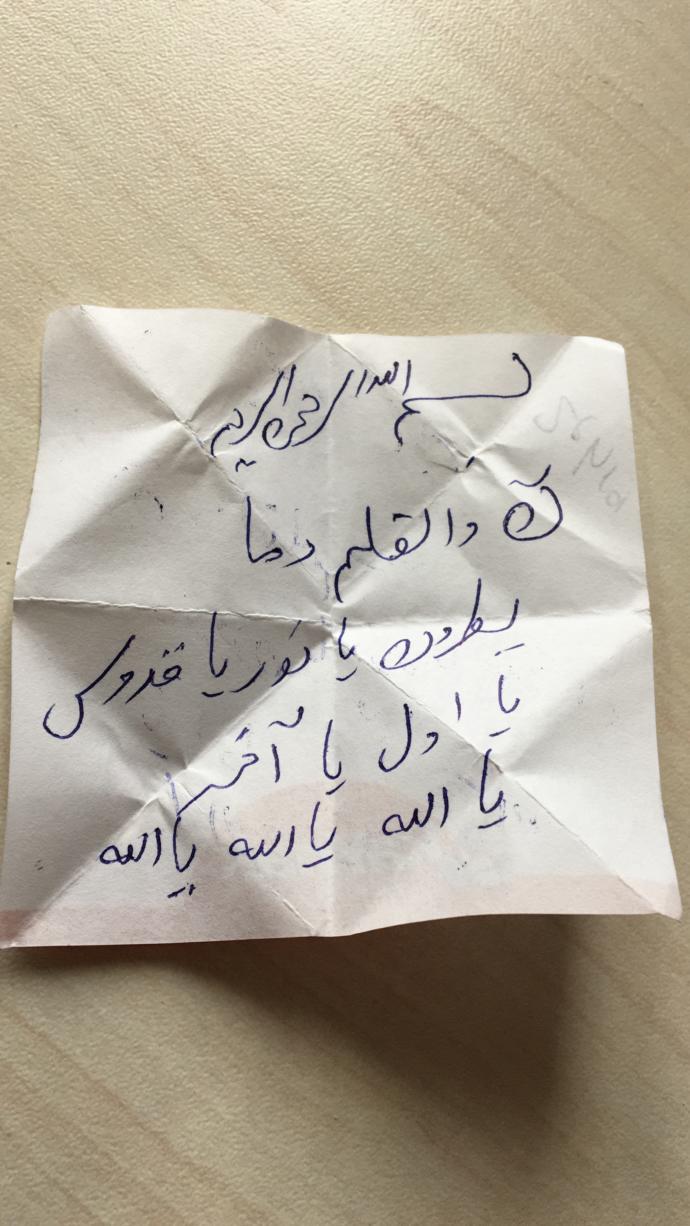 بسم الله الرحمن الرحیم
ن والقلم وما
یسطرون یا نور یا قدوس
یا اول یا آخر
یا الله یا الله یا الله